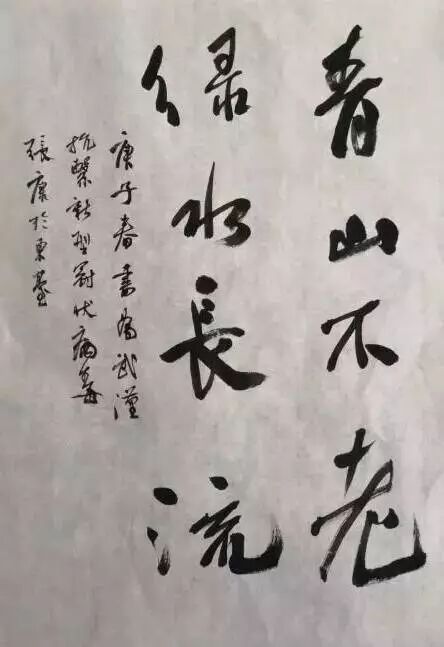 青山不老
绿水長流
庚子春書為武漢
抗擊新型冠状病毒
張康於東